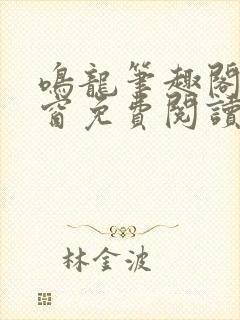 鳴龍筆趣閣
窗免費閱讀
林金波